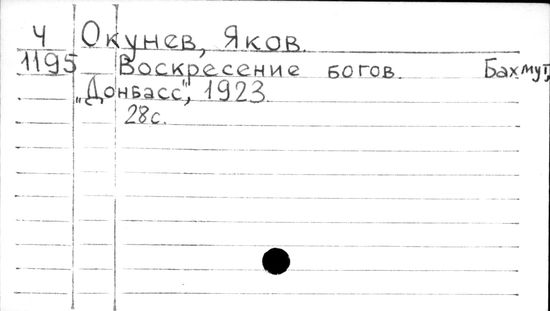 Ч Окунев, Яков.
1195 Воскресение богов. Бахмут,
„Донбасс", 1923.
28с.